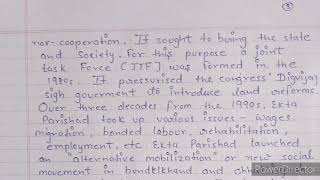 3
non-cooperation. It sought to buring the state
and Society. For this purpose a joint
task Force (JTF) was formed in the
1980s. It pressurised the congress' Digvijay
sigh goverment to introduce land reforms.
Over three decades from the 1990s, Ekta
Parishad took up various issues - wages
migration, bonded labour, rehabilitation,
employment, etc Ekta Parishad launched
an "alternative mobilization" or new social
movement in bundelkhand and chh
PowerDirector